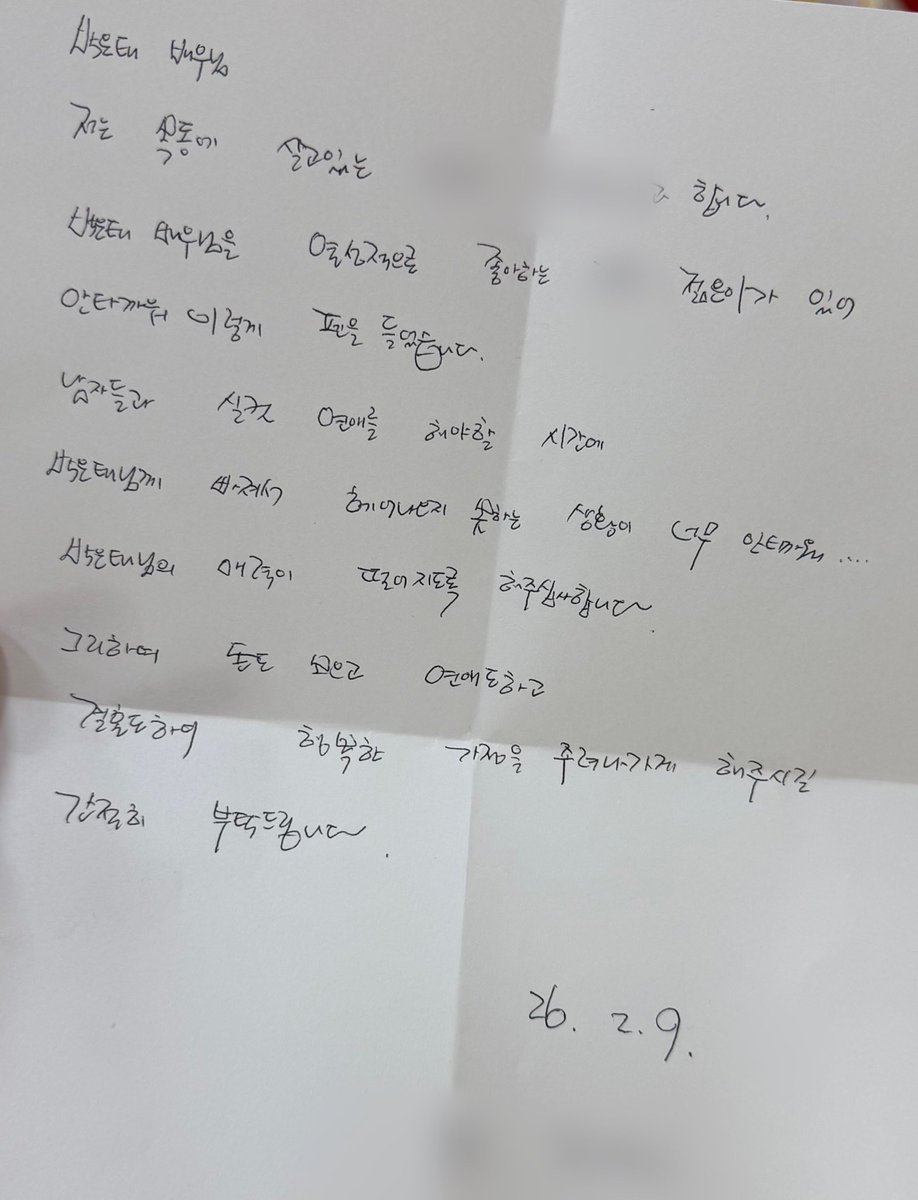 박은태 배우님
저는 목동에 살고있는 라 합니다.
박은태 배우님을 열성적으로 좋아하는 젊은아가 있어
안타까워 이렇게 펜을 들었습니다.
남자들과 실컷 연애를 해야할 시간에
박은태님께 빠져서 헤어나오지 못하는 생황이 너무 안타까워....
박은태님의 매력이 떨어지도록 해주십사합니다.
그리하여 돈도 모으고 연애도하고
결혼도하여 행복한 가정을 꾸려나가게 해주시길
간절히 부탁드립니다.
26. 2. 9.